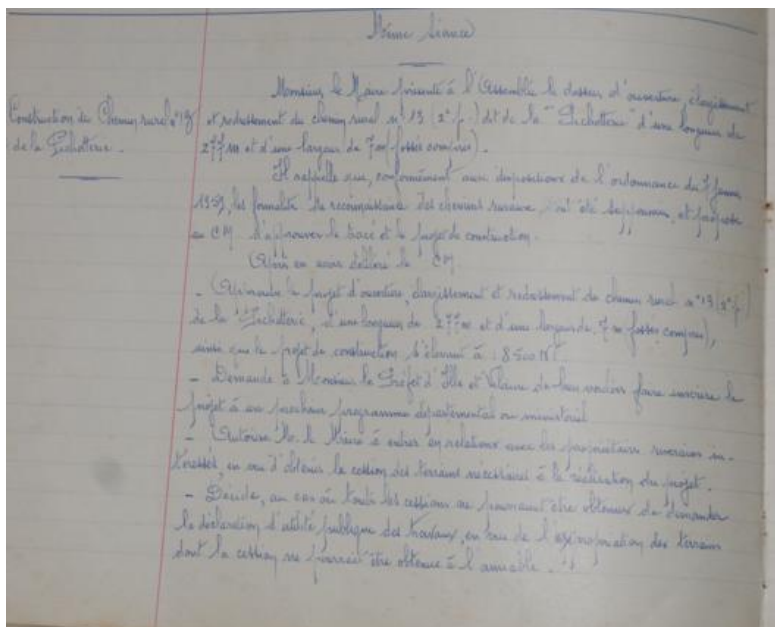 Même Séance
Construction du Chemin rural n° 13
de la Pichotterie.
Monsieur le Maire présente à l'Assemblée le dossier d'ouverture, élargissement
et redressement du chemin rural n° 13 (2e p.) dit de la "Pichotterie" d'une longueur de
277 m et d'une largeur de 7 m (fossés compris).
Il rappelle que, conformément aux dispositions de l'ordonnance du 7 janvier
1959, les formalités de reconnaissance des chemins ruraux, ont été supprimées, et propose
au CM d'approuver le tracé et le projet de construction.
Après en avoir délibéré le CM.
- Approuve le projet d'ouverture, élargissement et redressement du chemin rural n° 13 (2e p.)
de la "Pichotterie", d'une longueur de 277 m et d'une largeur de 7 m fossés compris),
ainsi que le projet de construction s'élevant à : 8500 NF.
- Demande à Monsieur le Préfet d'Ille et Vilaine de bien vouloir faire inscrire le
projet à un prochain programme départemental ou ministériel
- Autorise M. le Maire à entrer en relations avec les propriétaires riverains in-
téressés, en vue d'obtenir la cession des terrains nécessaires à la réalisation du projet.
- Décide, au cas où toutes les cessions ne pourraient être obtenues de demander
la déclaration d'utilité publique des travaux, en vue de l'expropriation des terrains
dont la cession ne pourrait être obtenue à l'amiable.